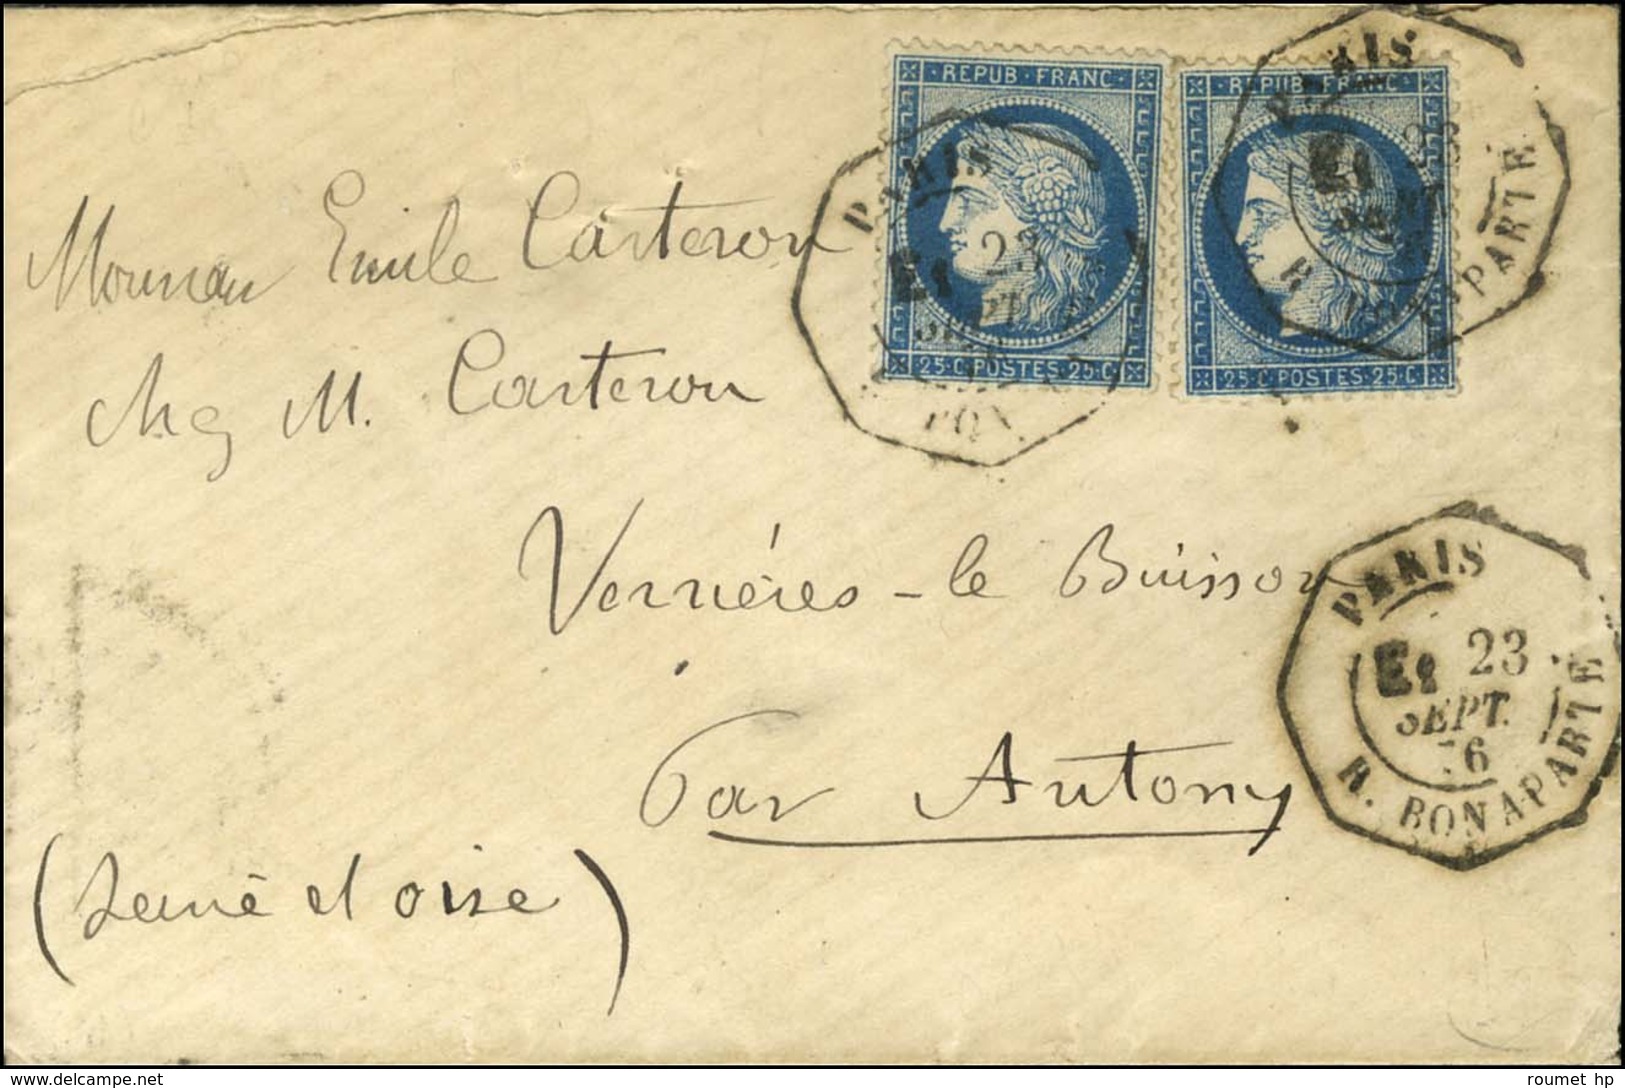 REPUB·FRANC
25·C·POSTES·25·C
REPUB·FRANC
25·C·POSTES·25·C
PARIS
E1 23
SEPT.
PARIS
E1 23
SEPT.
R. BONAPARTE
Monsieur Emile Carteron
chez M. Carteron
Verrières-le Buisson
Par Antony
(Seine et oise)
PARIS
E1 23
SEPT.
76
R. BONAPARTE
www.delcampe.net
roumet_hp